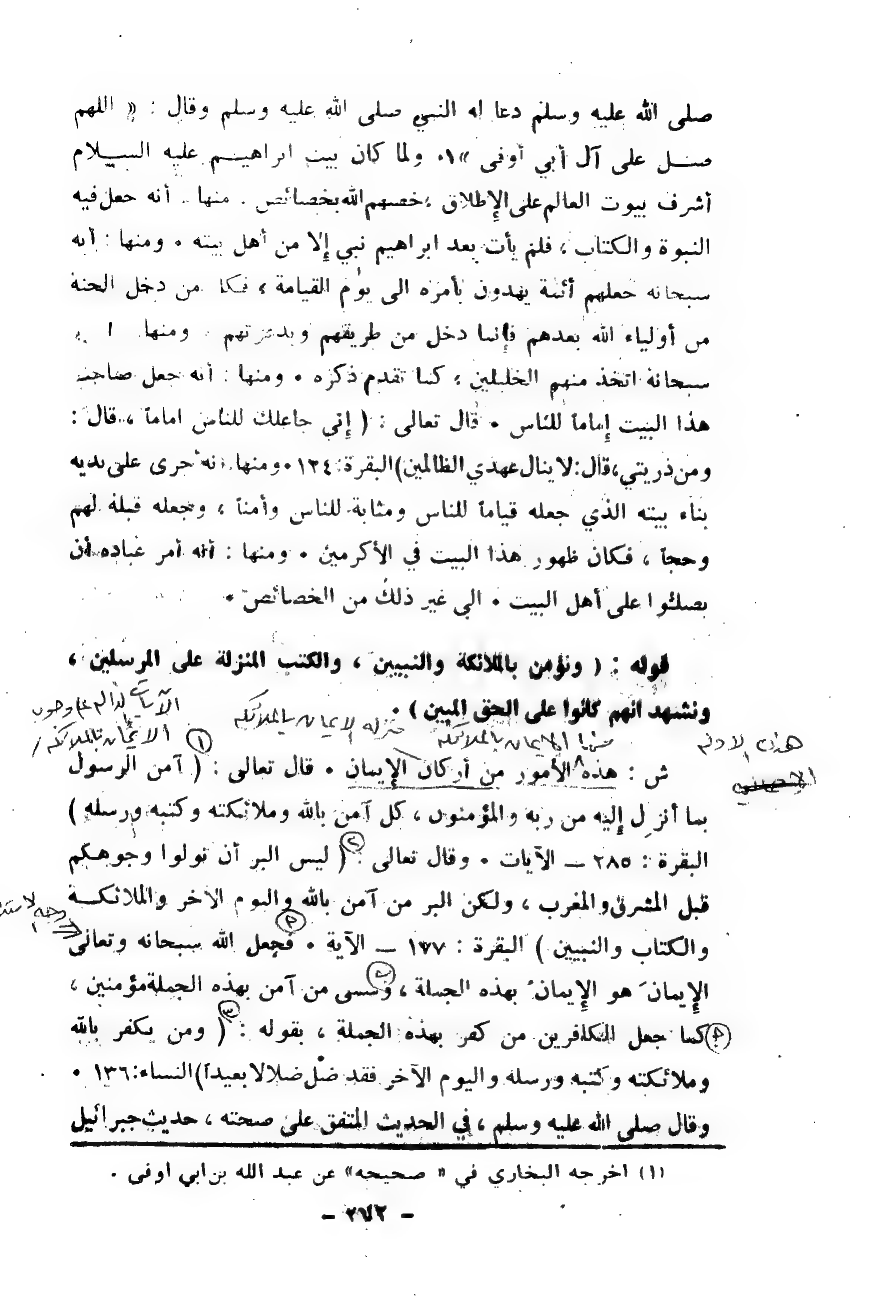 صلى الله عليه وسلم دعا له النبي صلى الله عليه وسلم وقال : « اللهم
صل على آل أبي أوفى »١٠ ولما كان بيت ابراهيم عليه السلام
أشرف بيوت العالم على الإطلاق ، خصهم الله بخصائص . منها . أنه جعل فيه
النبوة والكتاب ، فلم يأت بعد ابراهيم نبي إلا من أهل بيته ٠ ومنها : أنه
سبحانه جعلهم أئمة يهدون بأمره الى يوم القيامة ، فكل من دخل الجنة
من أولياء الله بعدهم فإنما دخل من طريقهم وبدعوتهم . ومنها
سبحانه اتخذ منهم الخليلين ، كما تقدم ذكره ٠ ومنها : أنه جعل صاحب
هذا البيت إماماً للناس ٠ قال تعالى : ( إني جاعلك للناس اماماً ، قال :
ومن ذريتي ، قال : لا ينال عهدي الظالمين ) البقرة : ١٢٤ ٠ ومنها . أنه أجرى على يديه
بناء بيته الذي جعله قياماً للناس ومثابة للناس وأمناً ، وجعله قبلة لهم
وحجاً ، فكان ظهور هذا البيت في الأكرمين ٠ ومنها : أنه أمر عباده أن
يصلوا على أهل البيت ٠ الى غير ذلك من الخصائص ٠
قوله : ( ونؤمن بالملائكة والنبيين ، والكتب المنزلة على المرسلين ،
ونشهد أنهم كانوا على الحق المبين ) ٠
منزلة الإيمان بالملائكة
الإيمان بالملائكة
ش : هذه الأمور من أركان الإيمان ٠ قال تعالى : ( آمن الرسول
بما أنزل إليه من ربه والمؤمنون ، كل آمن بالله وملائكته وكتبه ورسله )
البقرة : ٢٨٥ ــ الآيات ٠ وقال تعالى : ( ليس البر أن تولوا وجوهكم
قبل المشرق والمغرب ، ولكن البر من آمن بالله واليوم الآخر والملائكة
والكتاب والنبيين ) البقرة : ١٧٧ ــ الآية ٠ فجعل الله سبحانه وتعالى
الإيمانَ هو الإيمانُ بهذه الجملة ، وسمى من آمن بهذه الجملة مؤمنين ،
كما جعل الكافرين من كفر بهذه الجملة ، بقوله : ( ومن يكفر بالله
وملائكته وكتبه ورسله واليوم الآخر فقد ضل ضلالا بعيداً ) النساء : ١٣٦ ٠
وقال صلى الله عليه وسلم ، في الحديث المتفق على صحته ، حديث جبرائيل
(١) اخرجه البخاري في « صحيحه» عن عبد الله بن ابي اوفى .
- ٢٧٢ -